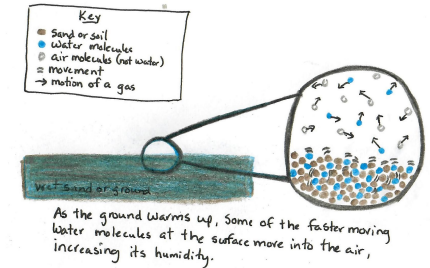 Key
Sand or soil
water molecules
air molecules (not water)
movement
motion of a gas
wet sand or ground
As the ground warms up, some of the faster moving
water molecules at the surface move into the air,
increasing its humidity.